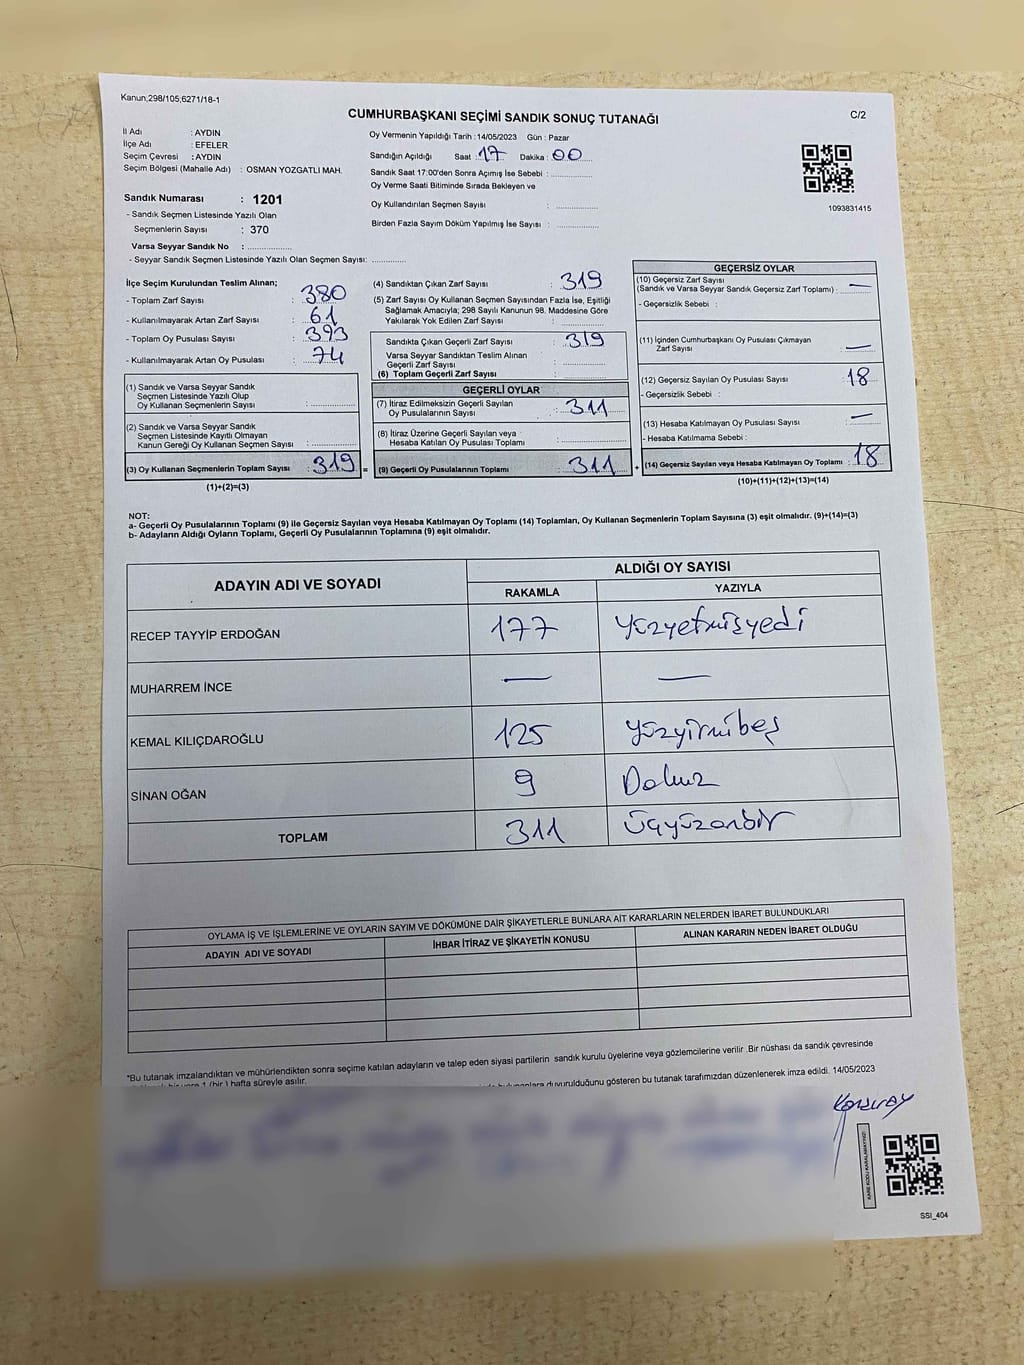 Kanun;298/105;6271/18-1
CUMHURBAŞKANI SEÇİMİ SANDIK SONUÇ TUTANAĞI
C/2
İl Adı : AYDIN
İlçe Adı : EFELER
Seçim Çevresi : AYDIN
Seçim Bölgesi (Mahalle Adı) : OSMAN YOZGATLI MAH.
Sandık Numarası : 1201
- Sandık Seçmen Listesinde Yazılı Olan
Seçmenlerin Sayısı : 370
Varsa Seyyar Sandık No : ..............
- Seyyar Sandık Seçmen Listesinde Yazılı Olan Seçmen Sayısı: ............
Oy Vermenin Yapıldığı Tarih : 14/05/2023 Gün : Pazar
Sandığın Açıldığı Saat : 17 Dakika : 00
Sandık Saat 17:00'den Sonra Açımış İse Sebebi : ..............
Oy Verme Saati Bitiminde Sırada Bekleyen ve
Oy Kullandırılan Seçmen Sayısı : ..............
Birden Fazla Sayım Döküm Yapılmış İse Sayısı : ..............
1093831415
İlçe Seçim Kurulundan Teslim Alınan;
- Toplam Zarf Sayısı : 380
- Kullanılmayarak Artan Zarf Sayısı : 61
- Toplam Oy Pusulası Sayısı : 393
- Kullanılmayarak Artan Oy Pusulası : 74
(1) Sandık ve Varsa Seyyar Sandık
Seçmen Listesinde Yazılı Olup
Oy Kullanan Seçmenlerin Sayısı : ..............
(2) Sandık ve Varsa Seyyar Sandık
Seçmen Listesinde Kayıtlı Olmayan
Kanun Gereği Oy Kullanan Seçmen Sayısı : ..............
(3) Oy Kullanan Seçmenlerin Toplam Sayısı : 319 =
(1)+(2)=(3)
(4) Sandıktan Çıkan Zarf Sayısı : 319
(5) Zarf Sayısı Oy Kullanan Seçmen Sayısından Fazla İse, Eşitliği
Sağlamak Amacıyla; 298 Sayılı Kanunun 98. Maddesine Göre
Yakılarak Yok Edilen Zarf Sayısı : ..............
Sandıkta Çıkan Geçerli Zarf Sayısı : 319
Varsa Seyyar Sandıktan Teslim Alınan
Geçerli Zarf Sayısı : ..............
(6) Toplam Geçerli Zarf Sayısı : ..............
GEÇERLİ OYLAR
(7) İtiraz Edilmeksizin Geçerli Sayılan
Oy Pusulalarının Sayısı : 311
(8) İtiraz Üzerine Geçerli Sayılan veya
Hesaba Katılan Oy Pusulası Toplamı : ..............
(9) Geçerli Oy Pusulalarının Toplamı : 311 +
GEÇERSİZ OYLAR
(10) Geçersiz Zarf Sayısı
(Sandık ve Varsa Seyyar Sandık Geçersiz Zarf Toplamı) : —
- Geçersizlik Sebebi :
(11) İçinden Cumhurbaşkanı Oy Pusulası Çıkmayan
Zarf Sayısı : —
(12) Geçersiz Sayılan Oy Pusulası Sayısı : 18
- Geçersizlik Sebebi :
(13) Hesaba Katılmayan Oy Pusulası Sayısı : —
- Hesaba Katılmama Sebebi :
(14) Geçersiz Sayılan veya Hesaba Katılmayan Oy Toplamı : 18
(10)+(11)+(12)+(13)=(14)
NOT:
a- Geçerli Oy Pusulalarının Toplamı (9) ile Geçersiz Sayılan veya Hesaba Katılmayan Oy Toplamı (14) Toplamları, Oy Kullanan Seçmenlerin Toplam Sayısına (3) eşit olmalıdır. (9)+(14)=(3)
b- Adayların Aldığı Oyların Toplamı, Geçerli Oy Pusulalarının Toplamına (9) eşit olmalıdır.
ADAYIN ADI VE SOYADI
ALDIĞI OY SAYISI
RAKAMLA YAZIYLA
RECEP TAYYİP ERDOĞAN 177 yüzyetmişyedi
MUHARREM İNCE — —
KEMAL KILIÇDAROĞLU 125 yüzyirmibeş
SİNAN OĞAN 9 Dokuz
TOPLAM 311 üçyüzonbir
OYLAMA İŞ VE İŞLEMLERİNE VE OYLARIN SAYIM VE DÖKÜMÜNE DAİR ŞİKAYETLERLE BUNLARA AİT KARARLARIN NELERDEN İBARET BULUNDUKLARI
ADAYIN ADI VE SOYADI İHBAR İTİRAZ VE ŞİKAYETİN KONUSU ALINAN KARARIN NEDEN İBARET OLDUĞU
*Bu tutanak imzalandıktan ve mühürlendikten sonra seçime katılan adayların ve talep eden siyasi partilerin sandık kurulu üyelerine veya gözlemcilerine verilir .Bir nüshası da sandık çevresinde
1 (bir ) hafta süreyle asılır.
duyurulduğunu gösteren bu tutanak tarafımızdan düzenlenerek imza edildi. 14/05/2023
KARE KODU KARALAMAYINIZ!
SSI_404